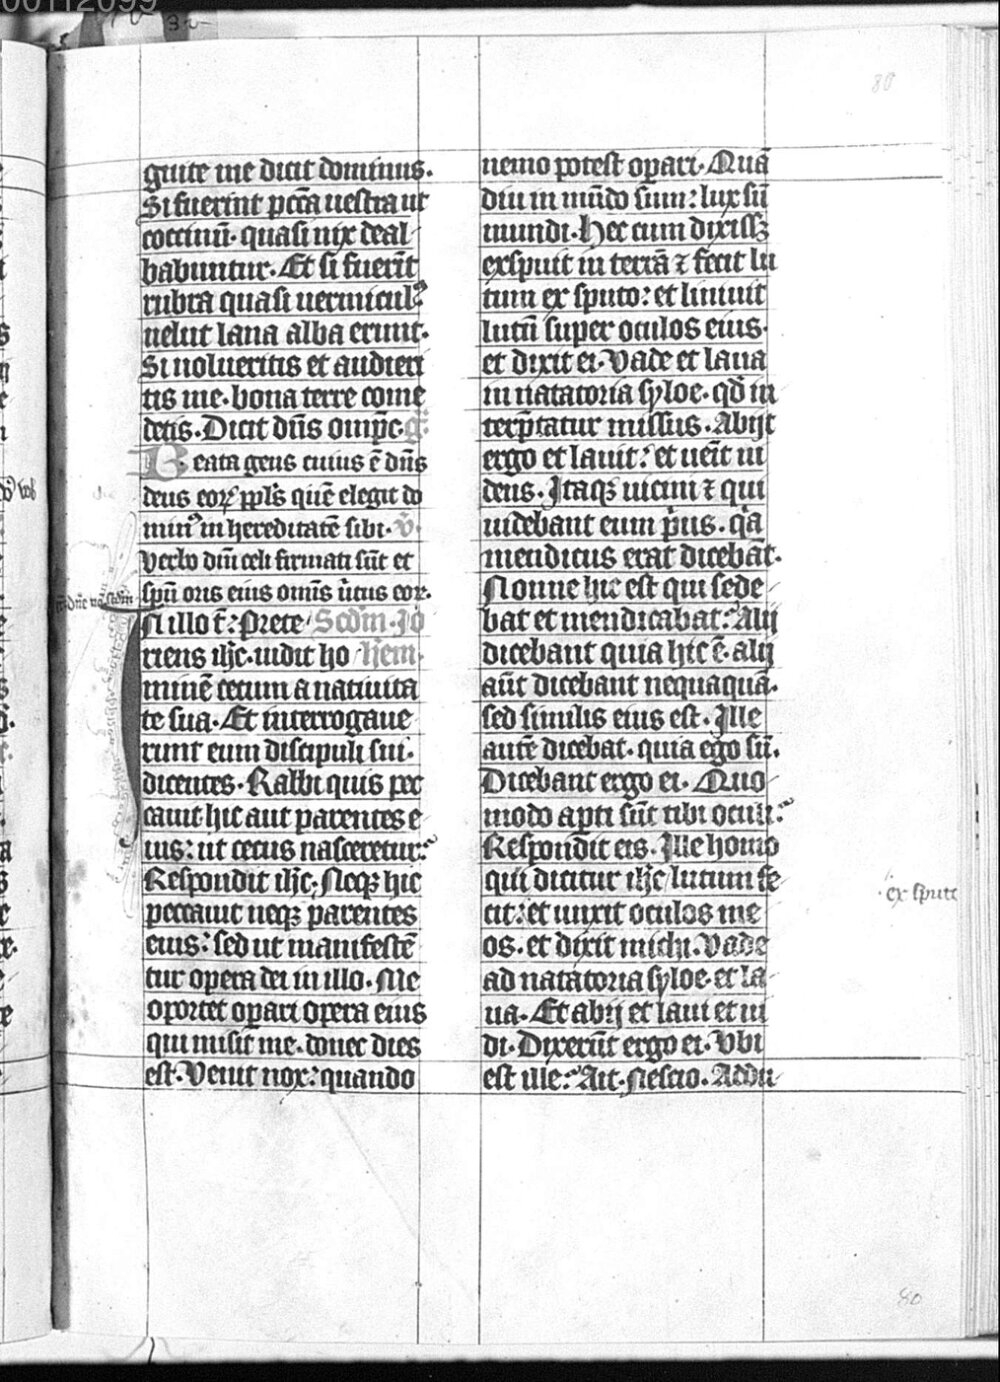 guite me dicit dominus.
Si fuerint pctā uestra ut
coccinū. quasi nix deal
babuntur. Et si fuerīt
rubra quasi uermiculꝰ
uelut lana alba erunt.
Si uolueritis et audieri
tis me. bona terre come
detis. Dicit dn̄s omp̄c. ḡ
Beata gens cuius ē dn̄s
deus eoꝝ ppl̄s quē elegit do
minꝰ in hereditatē sibi. v̄.
Verbo dn̄i celi firmati sūt et
spū oris eius omīs ūtus eoꝝ.
In illo t̄: Prete Scdm̄. Jo
riens ihc̄. uidit ho hem.
minē cecum a natiuita
te sua. Et interrogaue
runt eum discipuli sui.
dicentes. Rabbi quis pec
cauit hic aut parentes e
ius: ut cecus nasceretur:
Respondit ihc̄. Neqꝫ hic
peccauit neqꝫ parentes
eius: sed ut manifestē
tur opera dei in illo. Me
oportet opari opera eius
qui misit me. donec dies
est. Venit nox: quando
nemo potest opari. Quā
diu in mūdo sum: lux sū
mundi. Hec cum dixissꝫ
exspuit in terrā ⁊ fecit lu
tum ex sputo: et liniuit
lutū super oculos eius.
et dixit ei. Vade et laua
in natatoria syloe. qd̄ in
terp̄tatur missus. Abijt
ergo et lauit: et uēit ui
dens. Itaqꝫ uicini ⁊ qui
uidebant eum p̄us. qͣa
mendicus erat dicebāt.
Nonne hic est qui sede
bat et mendicabat: Alij
dicebant quia hic ē. alij
aūt dicebant nequaquā.
sed similis eius est. Ille
autē dicebat. quia ego sū.
Dicebant ergo ei. Quo
modo apti sūt tibi oculi:
Respondit eis. Ille homo
qui dicitur ihc̄ lutum fe
cit: et unxit oculos me
os. et dixit michi. Vade
ad natatoria syloe. et la
ua. Et abij et laui et ui
di. Dixerūt ergo ei. Vbi
est ille: Ait. Nescio. Addu
ex sputo
80
80